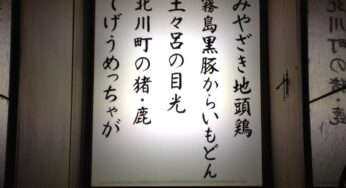 みやざき地頭鶏
霧島黒豚からいもどん
土々呂の目光
北川町の猪・鹿
てげうめっちゃが